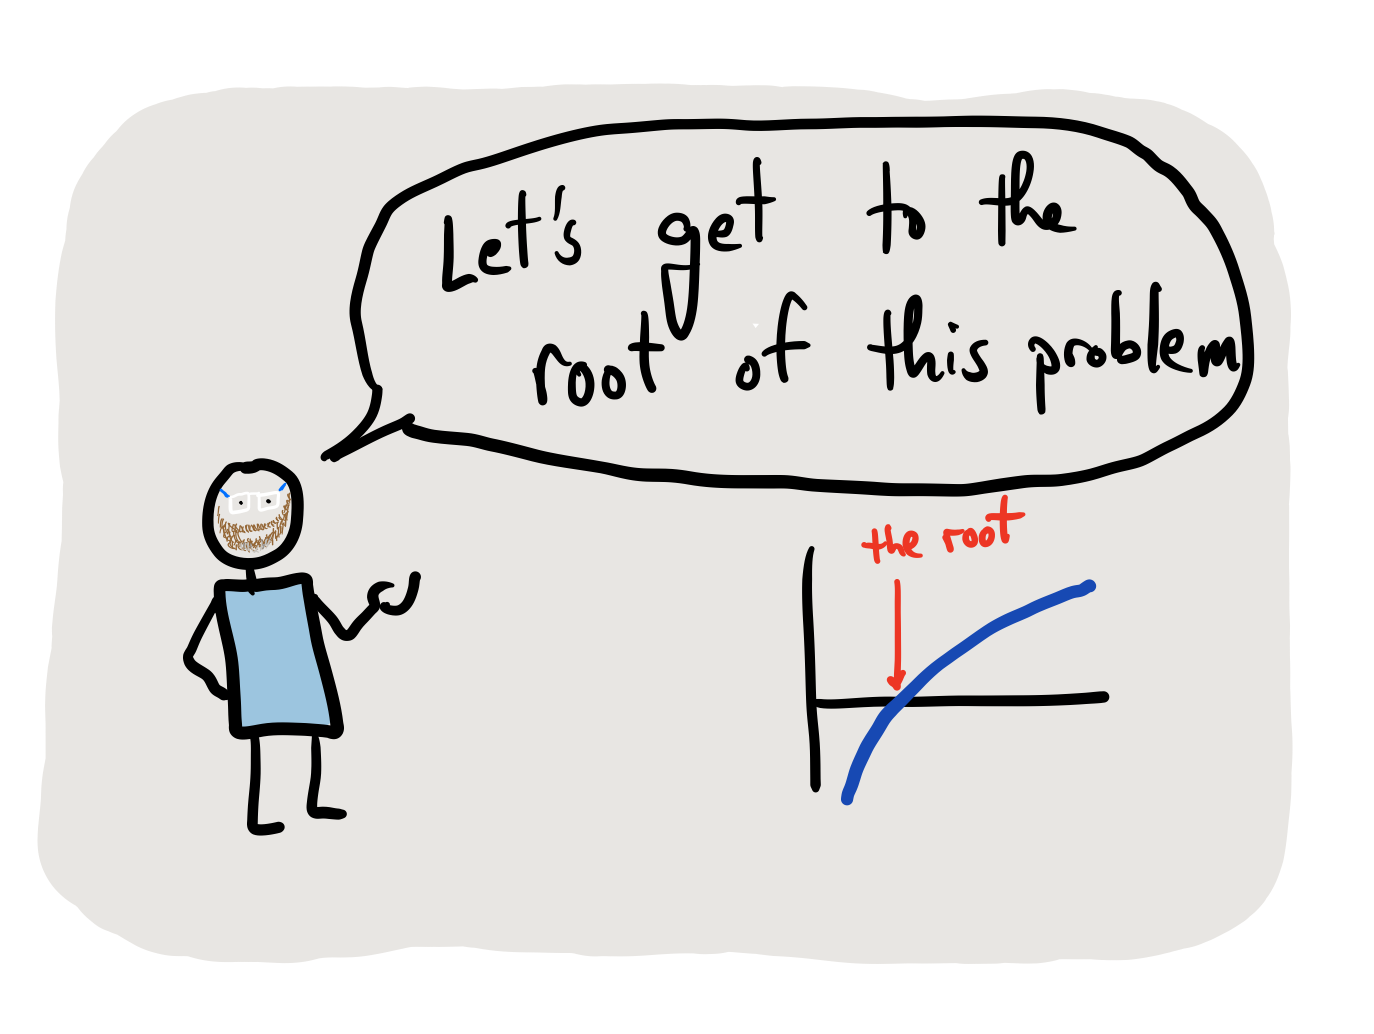 Let's get to the
root of this problem
the root